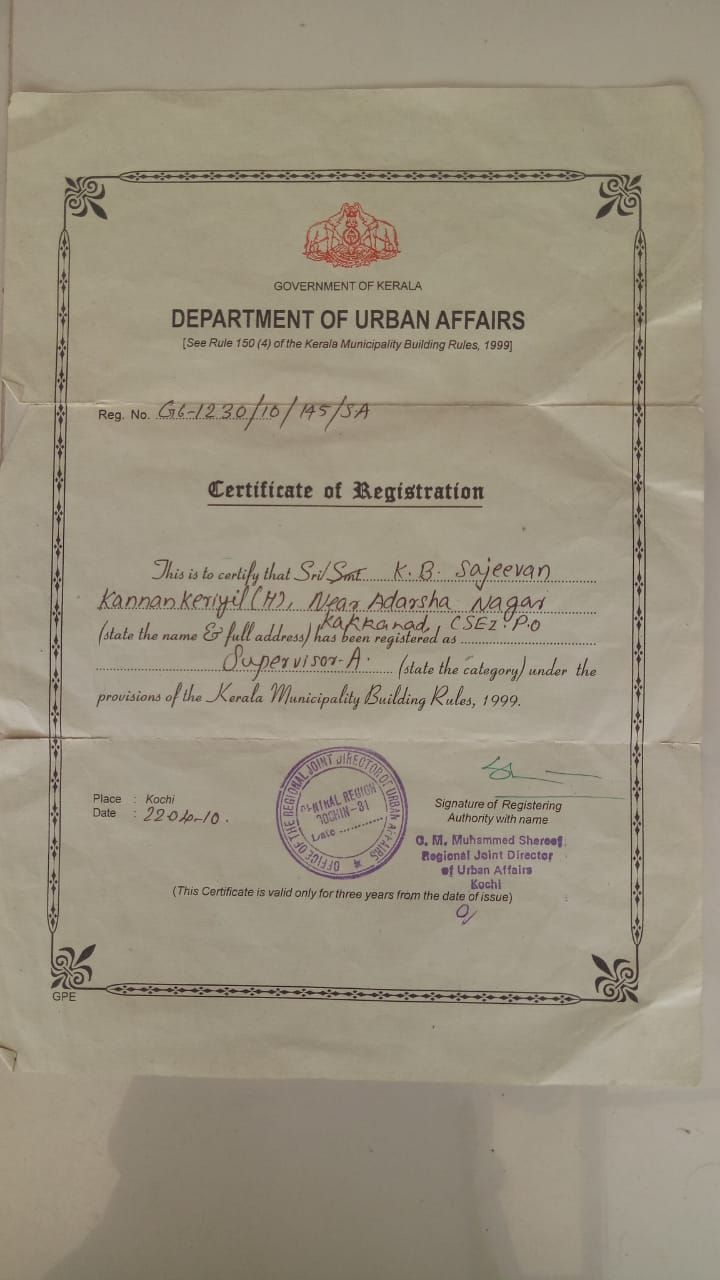 GOVERNMENT OF KERALA
DEPARTMENT OF URBAN AFFAIRS
[See Rule 150 (4) of the Kerala Municipality Building Rules, 1999]
Reg. No. G6-1230/10/145/SA
Certificate of Registration
This is to certify that Sri/Smt. K. B. Sajeevan
Kannankeriyil (H), Near Adarsha Nagar
Kakkanad, CSEZ. P.O
(state the name & full address) has been registered as
Supervisor-A. (state the category) under the
provisions of the Kerala Municipality Building Rules, 1999.
OFFICE OF THE REGIONAL JOINT DIRECTOR OF URBAN AFFAIRS
CENTRAL REGION
COCHIN-31
Date
Place : Kochi
Date : 22-04-10.
Signature of Registering
Authority with name
G. M. Muhammed Shereef
Regional Joint Director
of Urban Affairs
Kochi
(This Certificate is valid only for three years from the date of issue)
GPE